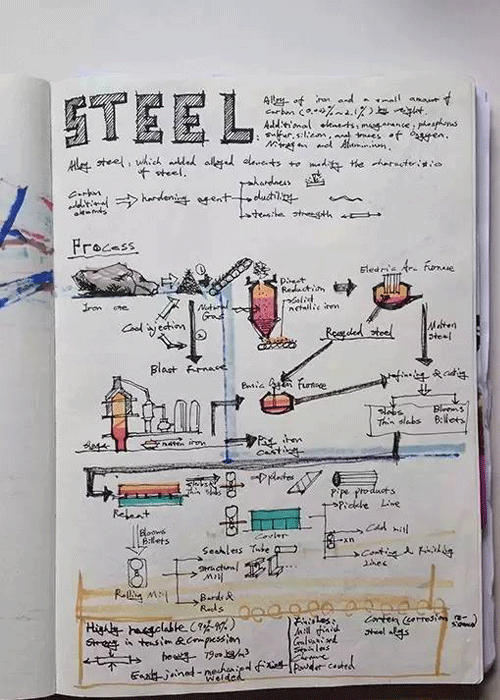 STEEL
Alloy of iron and a small amount of
carbon (0.002% – 2.1%) by weight.
Additional elements, manganese, phosphorus
sulfur, silicon, and traces of Oxygen,
Nitrogen and Alluminium.
Alloy steel, which added alloyed elements to modify the characteristic
of steel.
Carbon
additional
elements
hardening agent
hardness
ductility
tensile strength
Process
Iron ore
1
Coal injection
2
Natural
Gas
Direct
Reduction
Solid
metallic iron
Electric Arc Furnace
Recycled steel
Molten
steel
Blast Furnace
Basic Oxygen Furnace
refinning & casting
Slabs
Thin slabs
Blooms
Billets
slag
molten iron
Pig iron
casting
Reheat
Slabs &
Thin slabs
plates
Pipe products
Pickle Line
Cooler
xn
Cold mill
Coating & Finishing
Lines
Blooms
Billets
Rolling Mill
Seamless Tube
Structural
Mill
Bards &
Rods
Highly recyclable
Strong in tension & compression
heavy 7900 kg/m3
Easily joined - mechanical fixing
Welded
Finishes:
Mill finish
Galvanised
Stainless
Chrome
Powder-coated
Corten (corrosion re-
steel alloys